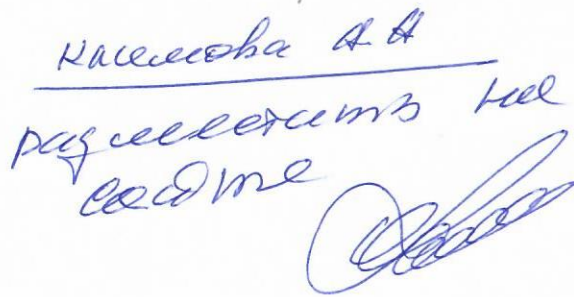 Касимова А.А
разместить на
сайте